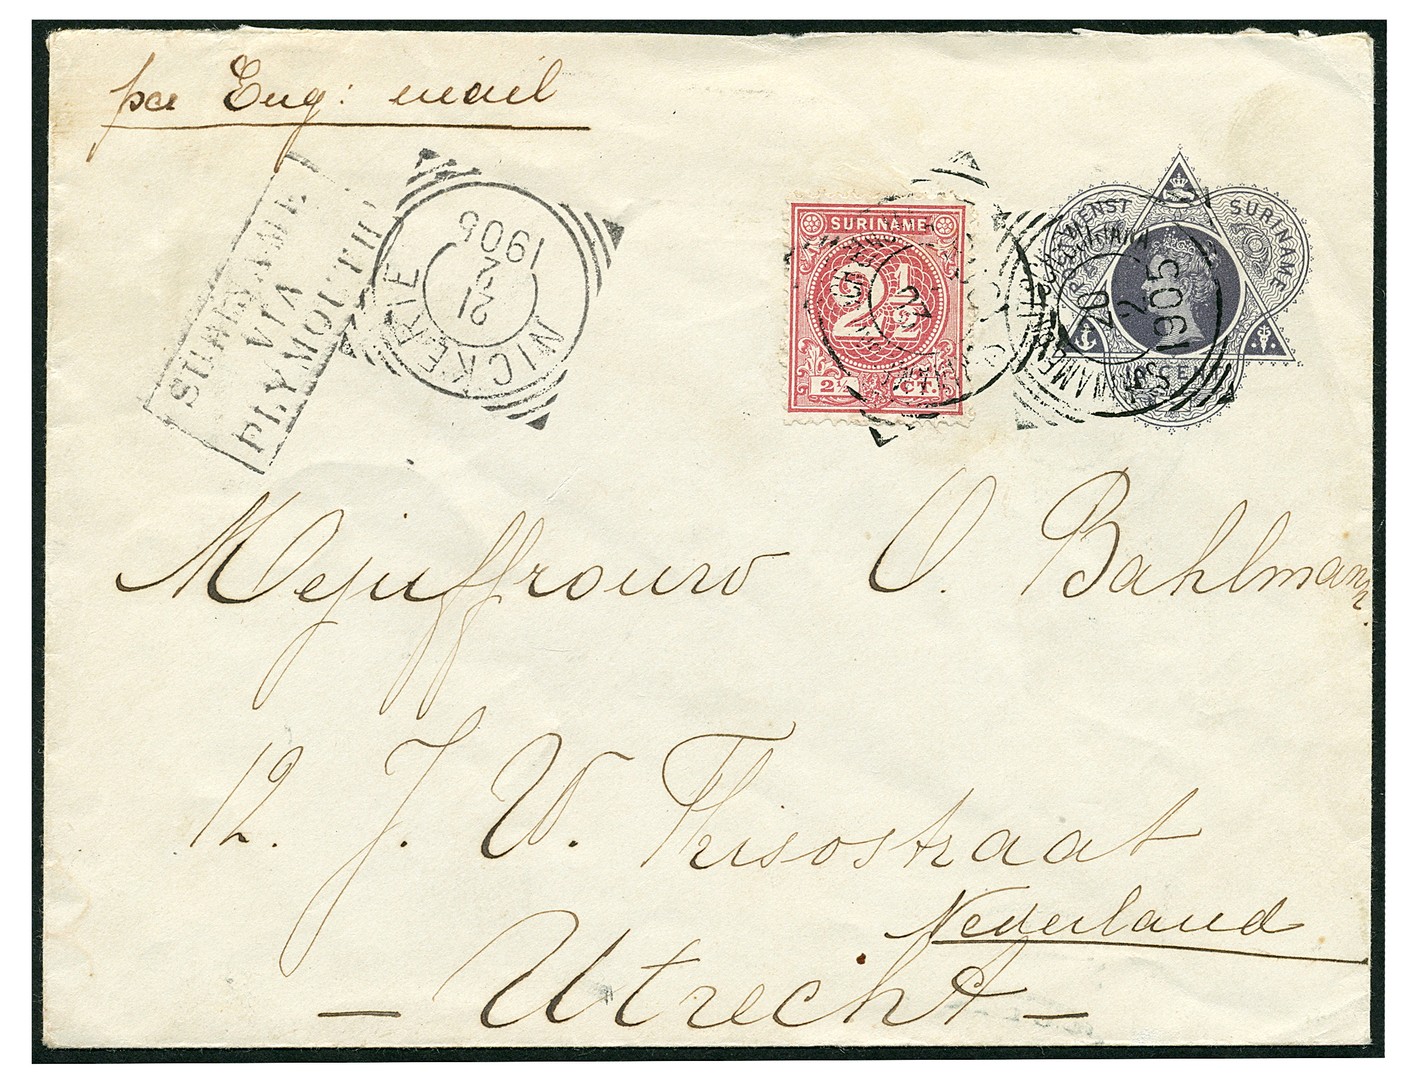 per Eng: mail
SURINAME
VIA
PLYMOUTH
NICKERIE
21
2
1905
SURINAME
2½
2½ CT.
23
SURINAME
20
2
1905
Mejuffrouw O. Bahlmann
12. J. W. Frisostraat
Nederland
— Utrecht —